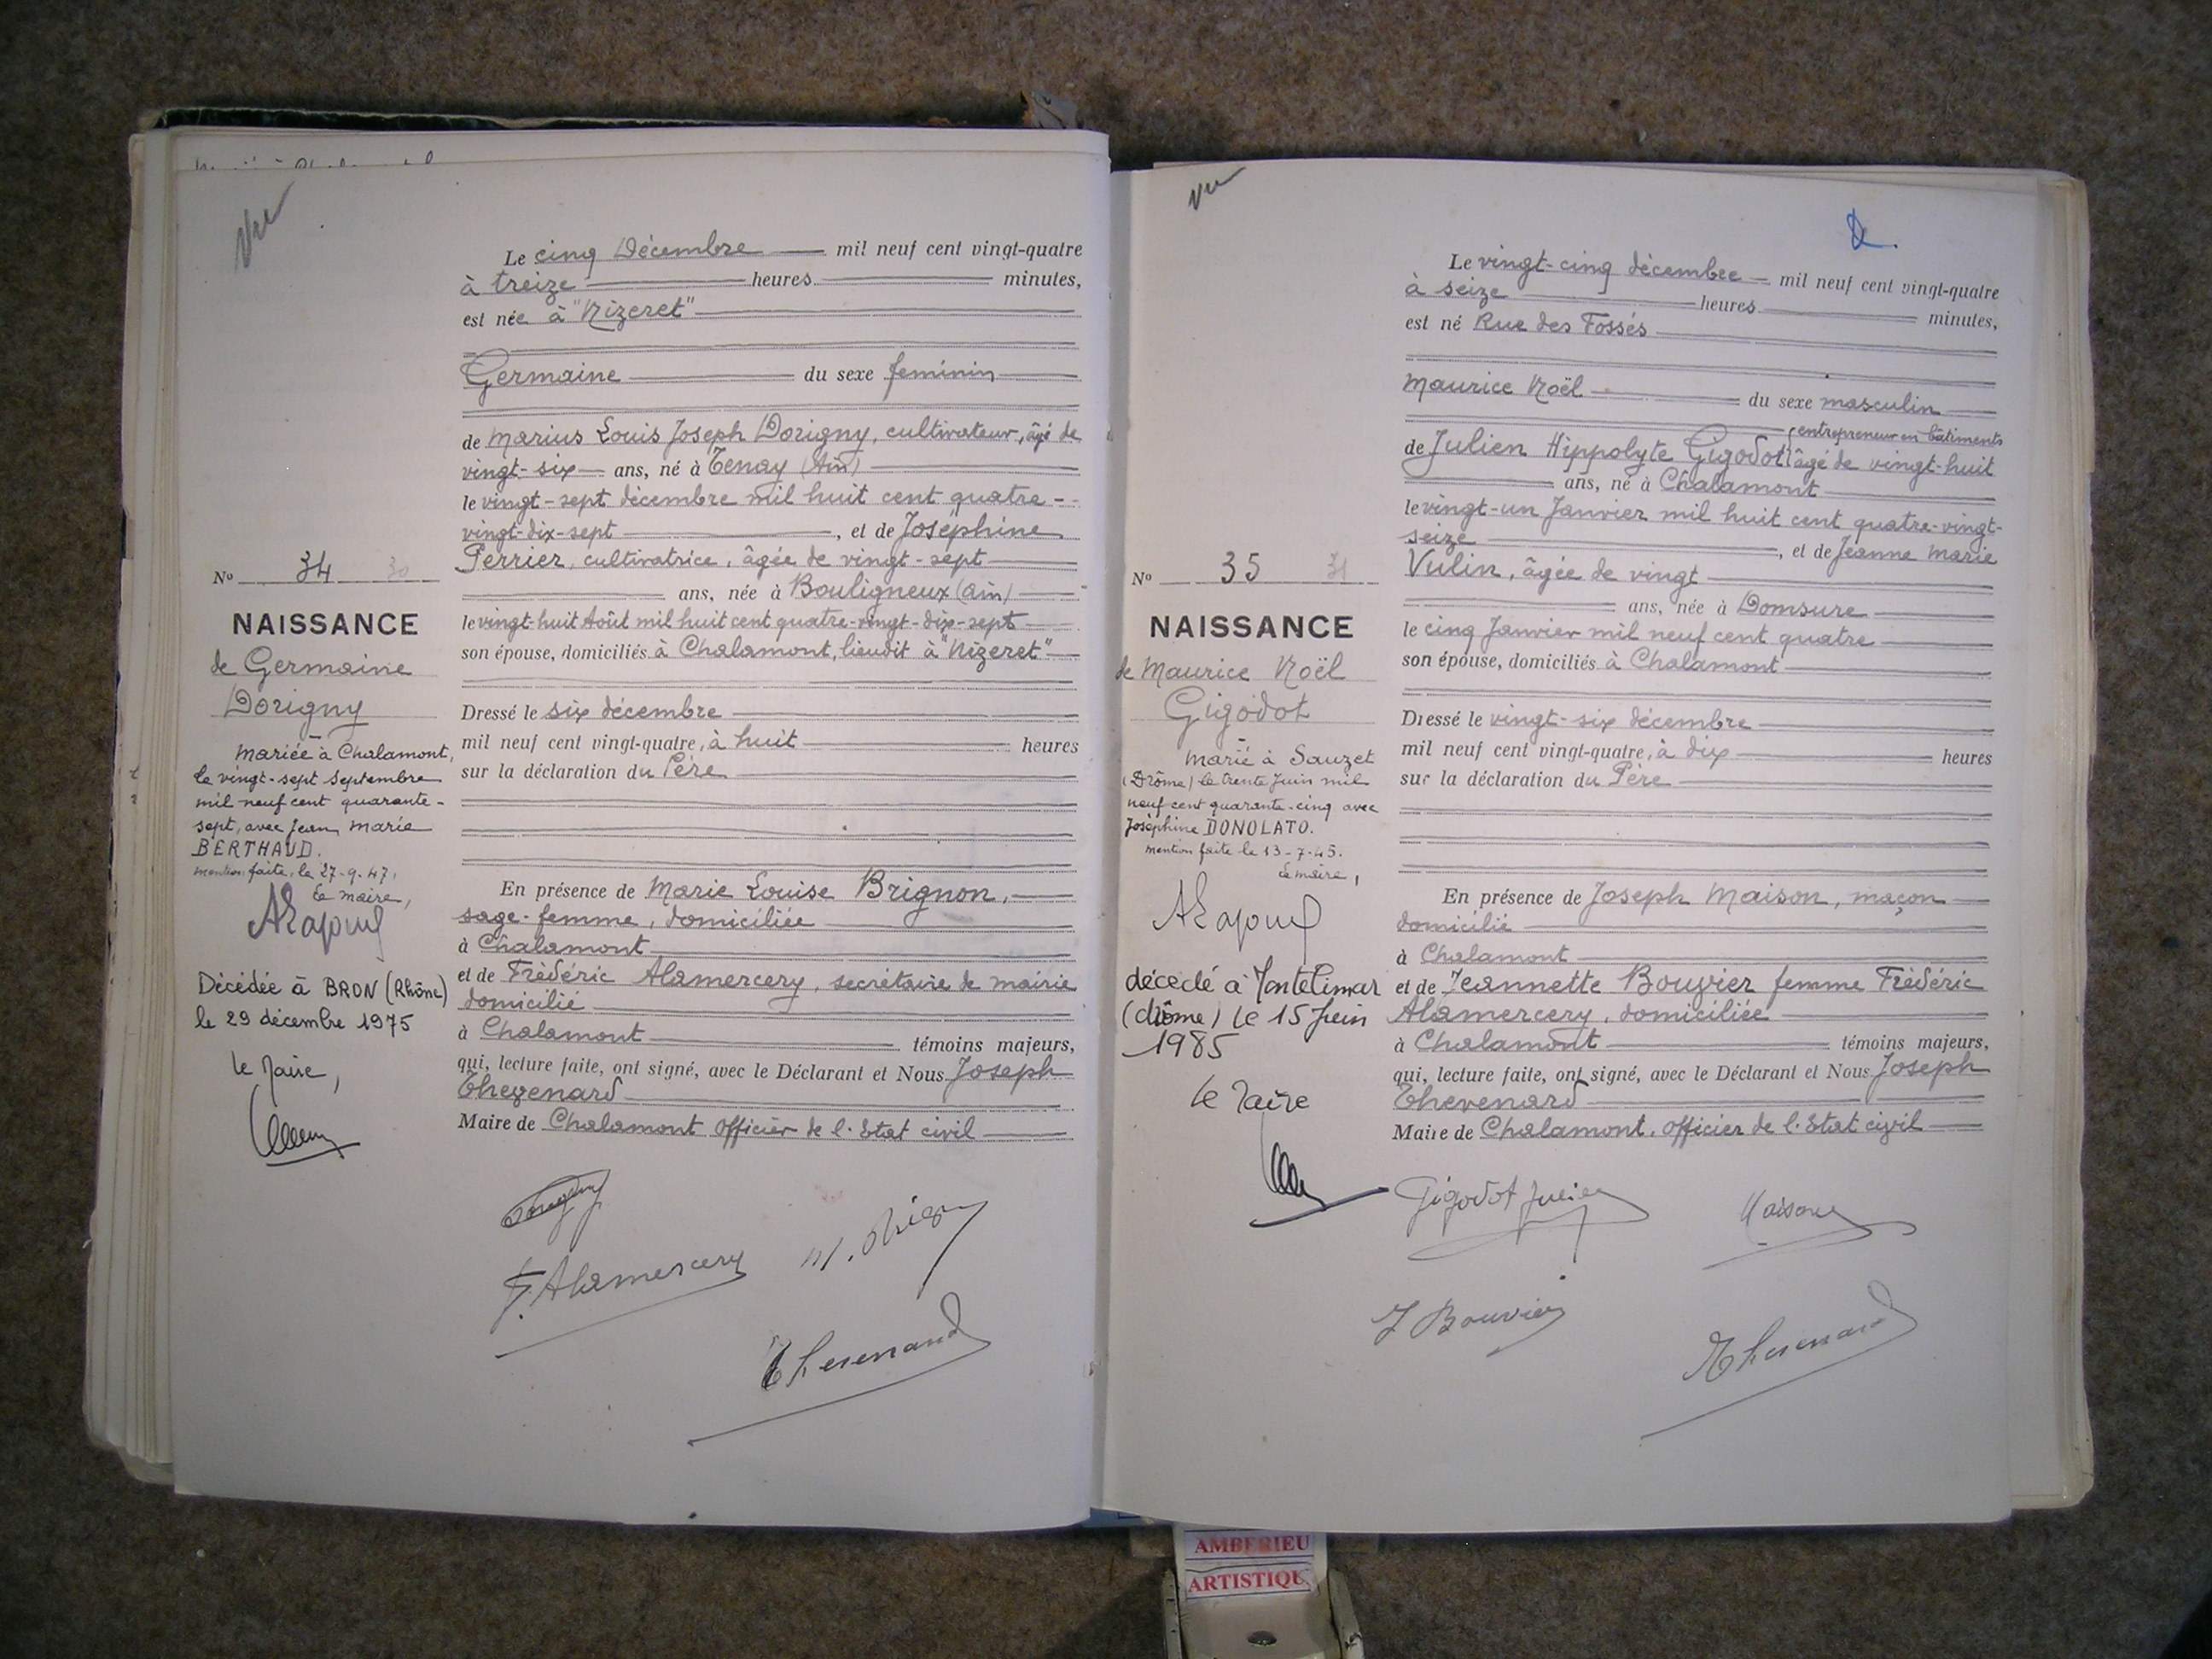 Vu
Le cinq Décembre mil neuf cent vingt-quatre
à treize heures minutes,
est née à "Nizeret"
Germaine du sexe féminin
de Marius Louis Joseph Dorigny, cultivateur, âgé de
vingt-six ans, né à Tenay (Ain)
le vingt-sept décembre mil huit cent quatre-
vingt-dix-sept, et de Joséphine
Perrier, cultivatrice, âgée de vingt-sept
ans, née à Bouligneux (Ain)
le vingt-huit Août mil huit cent quatre-vingt-dix-sept
son épouse, domiciliés à Chalamont, lieudit à "Nizeret"
Dressé le six décembre
mil neuf cent vingt-quatre, à huit heures
sur la déclaration du Père
En présence de Marie Louise Brignon,
sage-femme, domiciliée
à Chalamont
et de Frédéric Alamercery, secrétaire de mairie
domicilié
à Chalamont témoins majeurs,
qui, lecture faite, ont signé, avec le Déclarant et Nous Joseph
Thevenard
Maire de Chalamont, officier de l'Etat civil
F. Alamercery
Thevenard
No 34 30
NAISSANCE
de Germaine
Dorigny
Mariée à Chalamont,
le vingt-sept Septembre
mil neuf cent quarante-
sept, avec Jean Marie
BERTHAUD.
mention faite, le 27-9-47,
Le maire,
Décédée à BRON (Rhône)
le 29 décembre 1975
Le Maire,
Vu
Le vingt-cinq décembre mil neuf cent vingt-quatre
à seize heures minutes,
est né Rue des Fossés
Maurice Noël du sexe masculin
entrepreneur en bâtiments
de Julien Hippolyte Gigodot âgé de vingt-huit
ans, né à Chalamont
le vingt-un Janvier mil huit cent quatre-vingt-
seize, et de Jeanne Marie
Vulin, âgée de vingt
ans, née à Domsure
le cinq Janvier mil neuf cent quatre
son épouse, domiciliés à Chalamont
Dressé le vingt-six décembre
mil neuf cent vingt-quatre, à dix heures
sur la déclaration du Père
En présence de Joseph Maison, maçon
domicilié
à Chalamont
et de Jeannette Bouvier femme Frédéric
Alamercery, domiciliée
à Chalamont témoins majeurs,
qui, lecture faite, ont signé, avec le Déclarant et Nous Joseph
Thevenard
Maire de Chalamont, officier de l'Etat civil
Gigodot Julien
J Bouvier
Thevenard
No 35 31
NAISSANCE
de Maurice Noël
Gigodot
Marié à Sauzet
(Drôme) le trente Juin mil
neuf cent quarante-cinq avec
Joséphine DONOLATO.
mention faite le 13-7-45.
Le maire,
décédé à Montelimar
(drôme) le 15 Juin
1985
Le Maire
AMBERIEU
ARTISTIQU